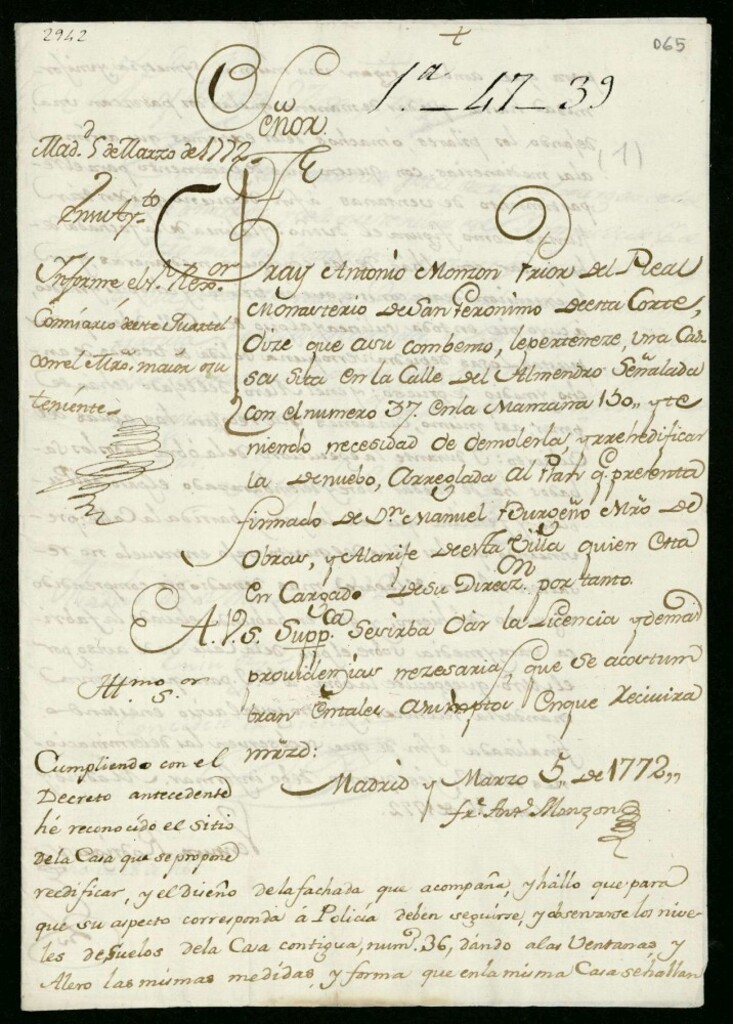 2942
065
+
1.ª - 47 - 39
Señor.
(1)
Mad.d 5 de Marzo de 1772
En su Ay.to
Informe el S.or Rexo.
Comisario de este Quartel
con el Mro. maior o su
teniente.
Fray Antonio Monzon Prior del Real
Monasterio de San Geronimo de esta Corte,
Dize que a su combento, le perteneze, una Ca-
sa sita en la Calle del Almendro Señalada
con el numero 37. en la Manzana 150,, y te
niendo necesidad de demolerla, y rrehedificar
la de nuebo, Arreglada al Plan q.e presenta
firmado de D.n Manuel Burgeño Mro de
Obras, y Alarife de esta Villa quien esta
En Cargado de su Direcz.on por tanto.
A. V. S. Supp.ca Se sirba Dar la Licencia y demas
providencias nezesarias, que se acostum
bran en tales asumptos En que Recivira
mrzd:
Madrid y Marzo 5,, de 1772,,
fr. Ant.o Monzon
Ill.mo S.or
Cumpliendo con el
Decreto antecedente
hé reconocido el sitio
de la Casa que se propone
reedificar, y el Diseño de la fachada que acompaña, y hállo que para
que su aspecto corresponda á Policía deben seguirse, y observarse los nive-
les de suelos de la Casa contigua, num.o 36, dándo a las Ventanas, y
Alero las mismas medidas, y forma que en la misma Casa se hallan